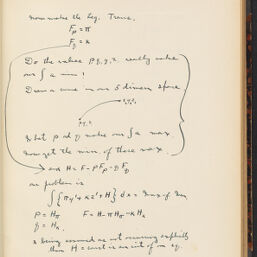 now make the Leg. Trans.
F_p = π
F_q = κ
Do the values p, q, y, z really make
our ∫ a min?
Draw a curve in our 5 dimen. space.
x, y, z,
x, y, z
& let p and q make our ∫ a max.
now get the min. of those max.
H = F - pF_p - qF_q
our problem is
∫{πy' + κz' + H} dx =
p = H_π F = H - πH_π - κH_κ
q = H_κ
x being assumed as not occurring explicitly
then H = const is an int of our eq.